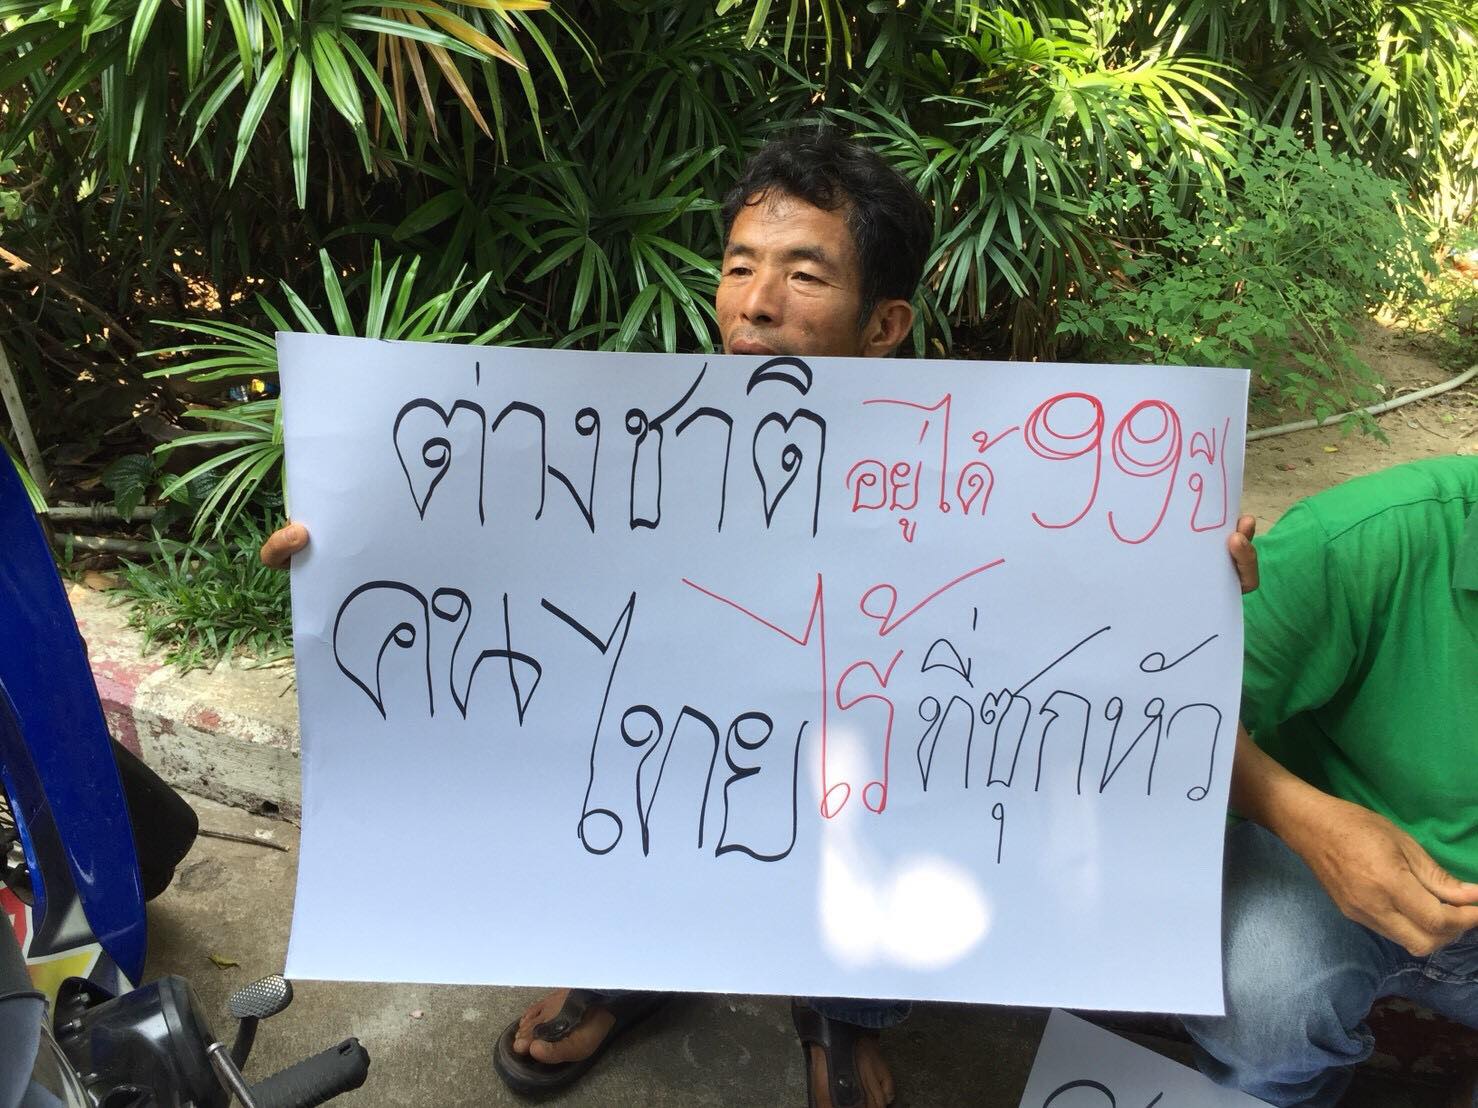 ต่างชาติ อยู่ได้ 99 ปี
คนไทย ไร้ ที่ซุกหัว